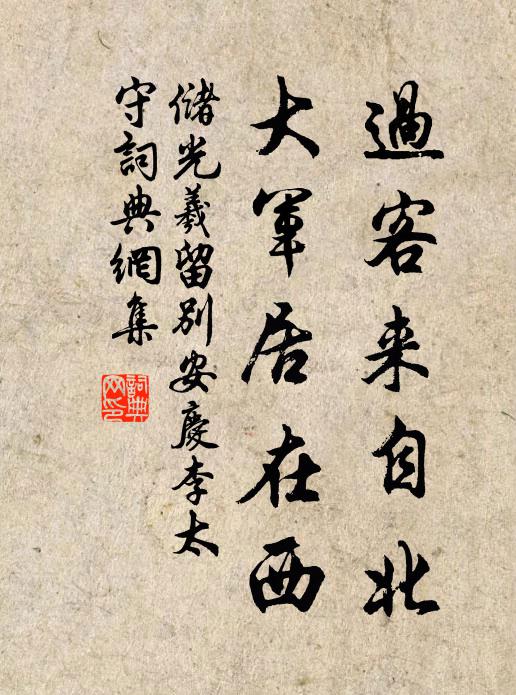 過客来自北
大軍居在西
儲光羲留別安慶李太
守詞典網集
詞典
网印